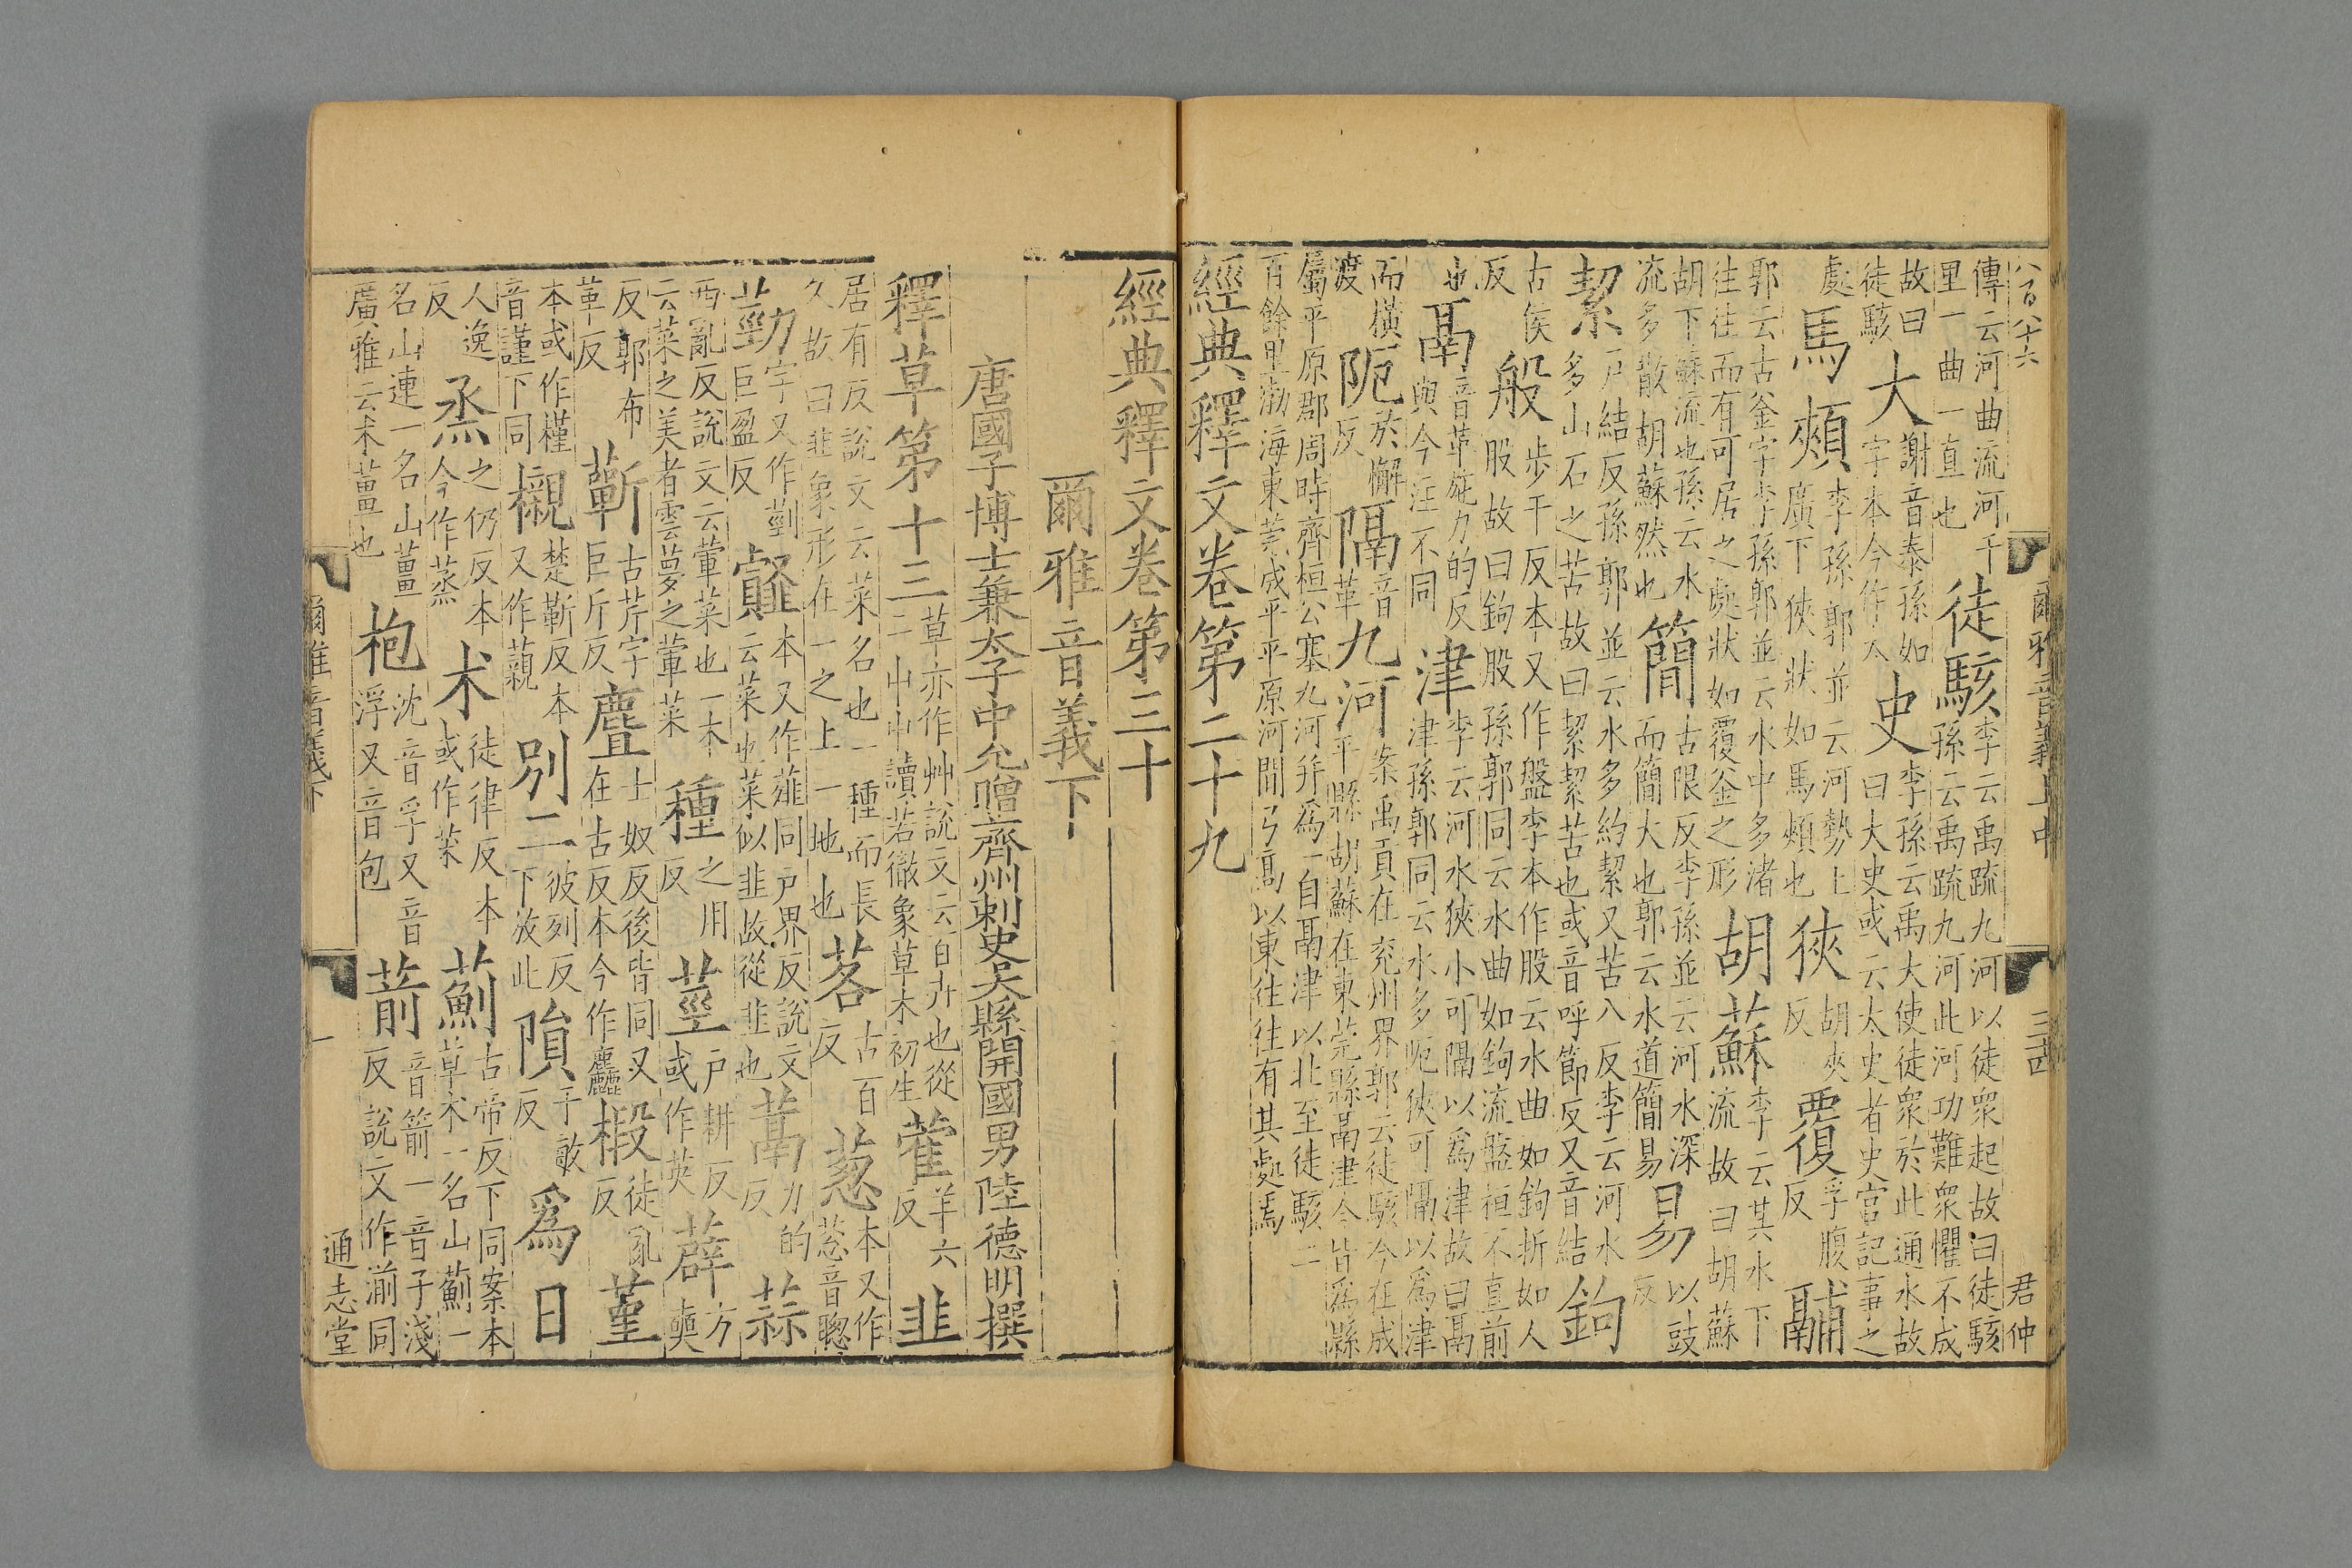 八百八十六 爾雅音義上中 三四 君仲
傳云河曲流河千里一曲一直也徒駭李云禹疏九河以徒衆起故曰徒駭孫云禹疏九河此河功難衆懼不成
故曰徒駭大謝音泰孫如字本今作太史李孫云禹大使徒衆於此通水故曰大史或云太史者史官記事之
處馬頰李孫郭並云河勢上廣下狹狀如馬頰也狹胡夾反覆孚腹反鬴
郭云古釜字李孫郭並云水中多渚往往而有可居之處狀如覆釜之形胡蘇李云其水下流故曰胡蘇
胡下蘇流也孫云水流多散胡蘇然也簡古限反李孫並云河水深而簡大也郭云水道簡易易以豉反
絜戶結反孫郭並云水多約絜又苦八反李云河水多山石之苦故曰絜絜苦也或音呼節反又音結鉤
古侯反般步干反本又作盤李本作股云水曲如鉤折如人股故曰鉤股孫郭同云水曲如鉤流盤桓不直前
也鬲音革施力的反與今注不同津李云河水狹小可隔以爲津故曰鬲津孫郭同云水多阨狹可隔以爲津
而橫渡阨於懈反隔音革九河案禹貢在兗州界郭云徒駭今在成平縣胡蘇在東莞縣鬲津今皆爲縣
屬平原郡周時齊桓公塞九河并爲一自鬲津以北至徒駭二百餘里渤海東莞成平平原河間弓高以東往往有其處焉
經典釋文卷第二十九
經典釋文卷第三十
爾雅音義下
唐國子博士兼太子中允贈齊州刺史吳縣開國男陸德明撰
釋草第十三草亦作艸說文云百卉也從二屮屮讀若徹象草木初生蒮羊六反韭
居有反說文云菜名也一種而長久故曰韭象形在一之上一地也茖古百反葱本又作䓗音聰
葝字又作剄巨盈反䪥本又作薤同戶界反說文云菜也菜似韭故從韭也蒚力的反蒜
西亂反說文云葷菜也一本云菜之美者雲夢之葷菜種之用反莖戶耕反或作英薜方奭
反郭布革反蘄古芹字巨斤反麆七奴反後皆同又在古反本今作麤椴徒亂反菫
本或作槿音謹下同櫬楚靳反本又作藽別二彼列反下放此隕于敏反爲日
人逸反烝之仍反本今作蒸朮徒律反本或作荗薊古帝反下同案本草朮一名山薊一
名山連一名山薑廣雅云朮山薑也枹沈音孚又音浮又音包葥音箭一音子淺反說文作湔同
爾雅音義下 一 通志堂